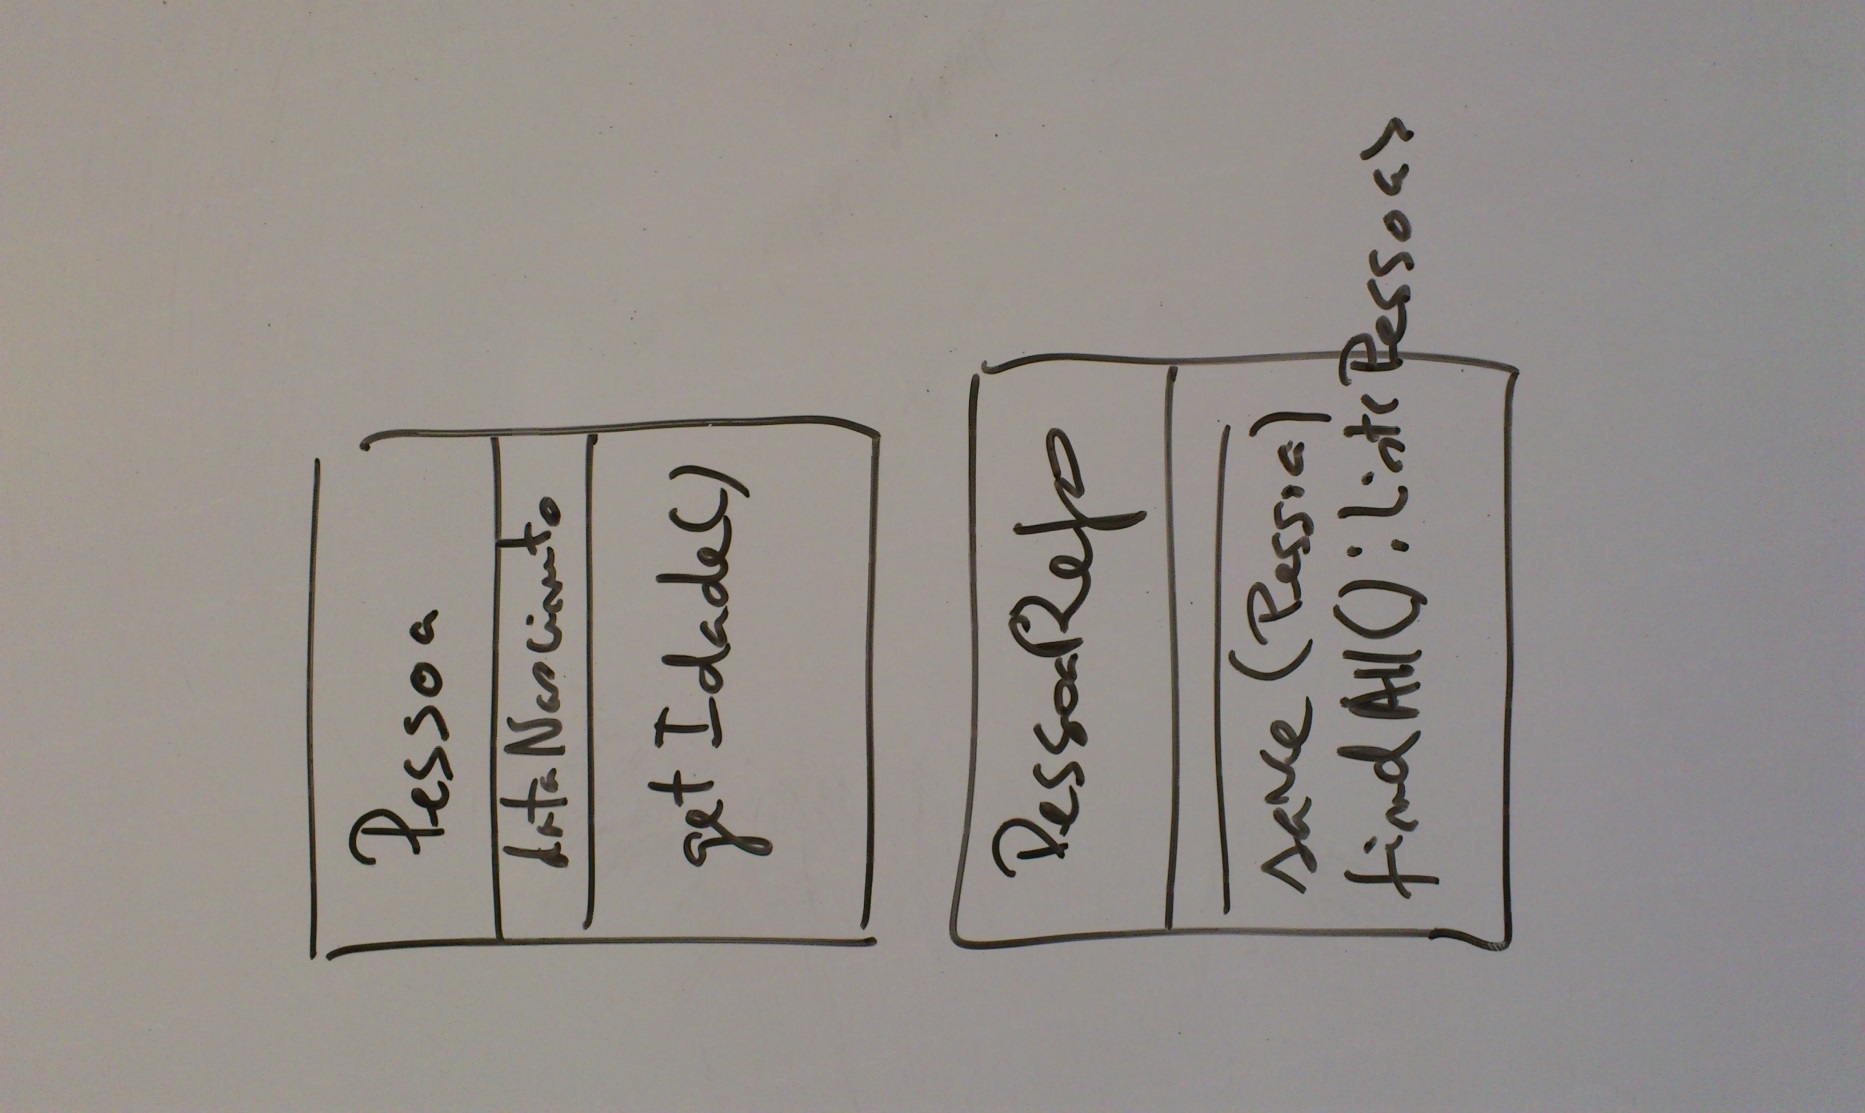 Pessoa
dataNascimento
getIdade()
PessoaRepo
save(Pessoa)
findAll():List<Pessoa>